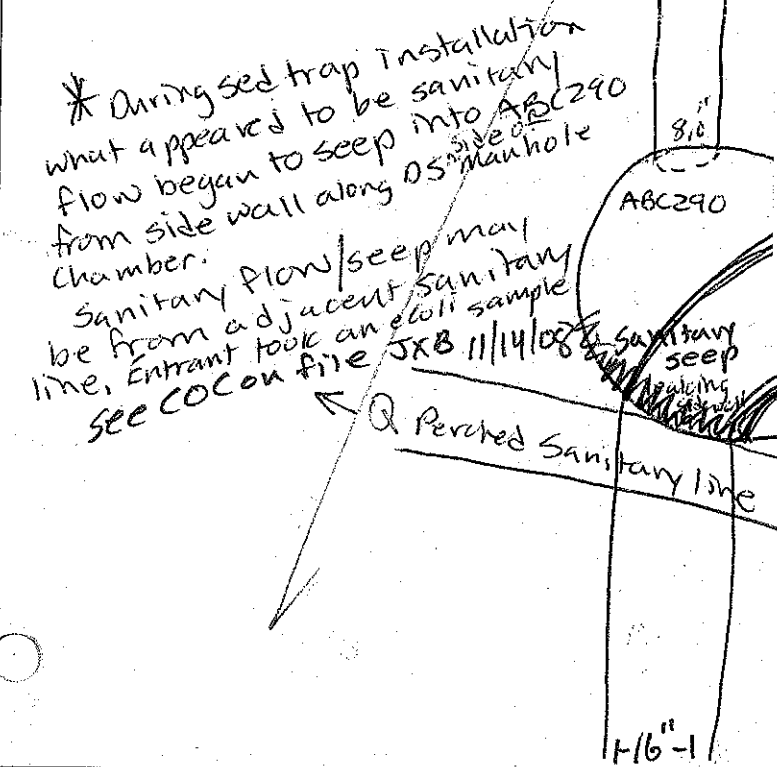 * During sed trap installation
what appeared to be sanitary
flow began to seep into ABC290
from side wall along DS side of manhole
chamber.
Sanitary flow/seep may
be from adjacent sanitary
line. Entrant took an ecoli sample
see COC on file JXB 11/14/08
8.0"
ABC290
sanitary
seep
leaking
sidewall
Q Perched Sanitary line
16"